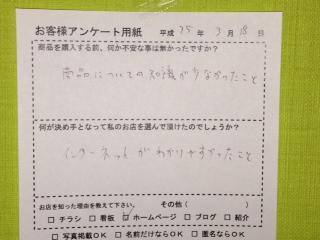 お客様アンケート用紙 平成 25 年 3 月 18 日
商品を購入する前、何か不安な事は無かったですか?
商品についての知識が少なかったこと
何が決め手となって私のお店を選んで頂けたのでしょうか?
インターネットがわかりやすかったこと
お店を知った理由を教えて下さい。 その他( )
□ チラシ □ 看板 □ ホームページ □ ブログ □ 紹介
□ 写真掲載OK □ 名前だけならOK □ 匿名ならOK